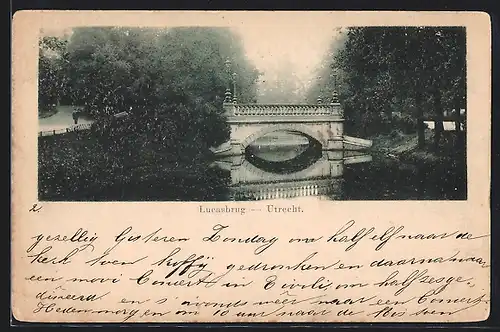 Lucasbrug — Utrecht.
2.
gezellig Gisteren Zondag om half elf naar de
kerk toen koffij gedronken en daarna naar
een mooi Concert in Tivoli om half zes ge-
dineerd en 's avonds weer naar een Concert
Hedenmorgen om 10 uur naar de